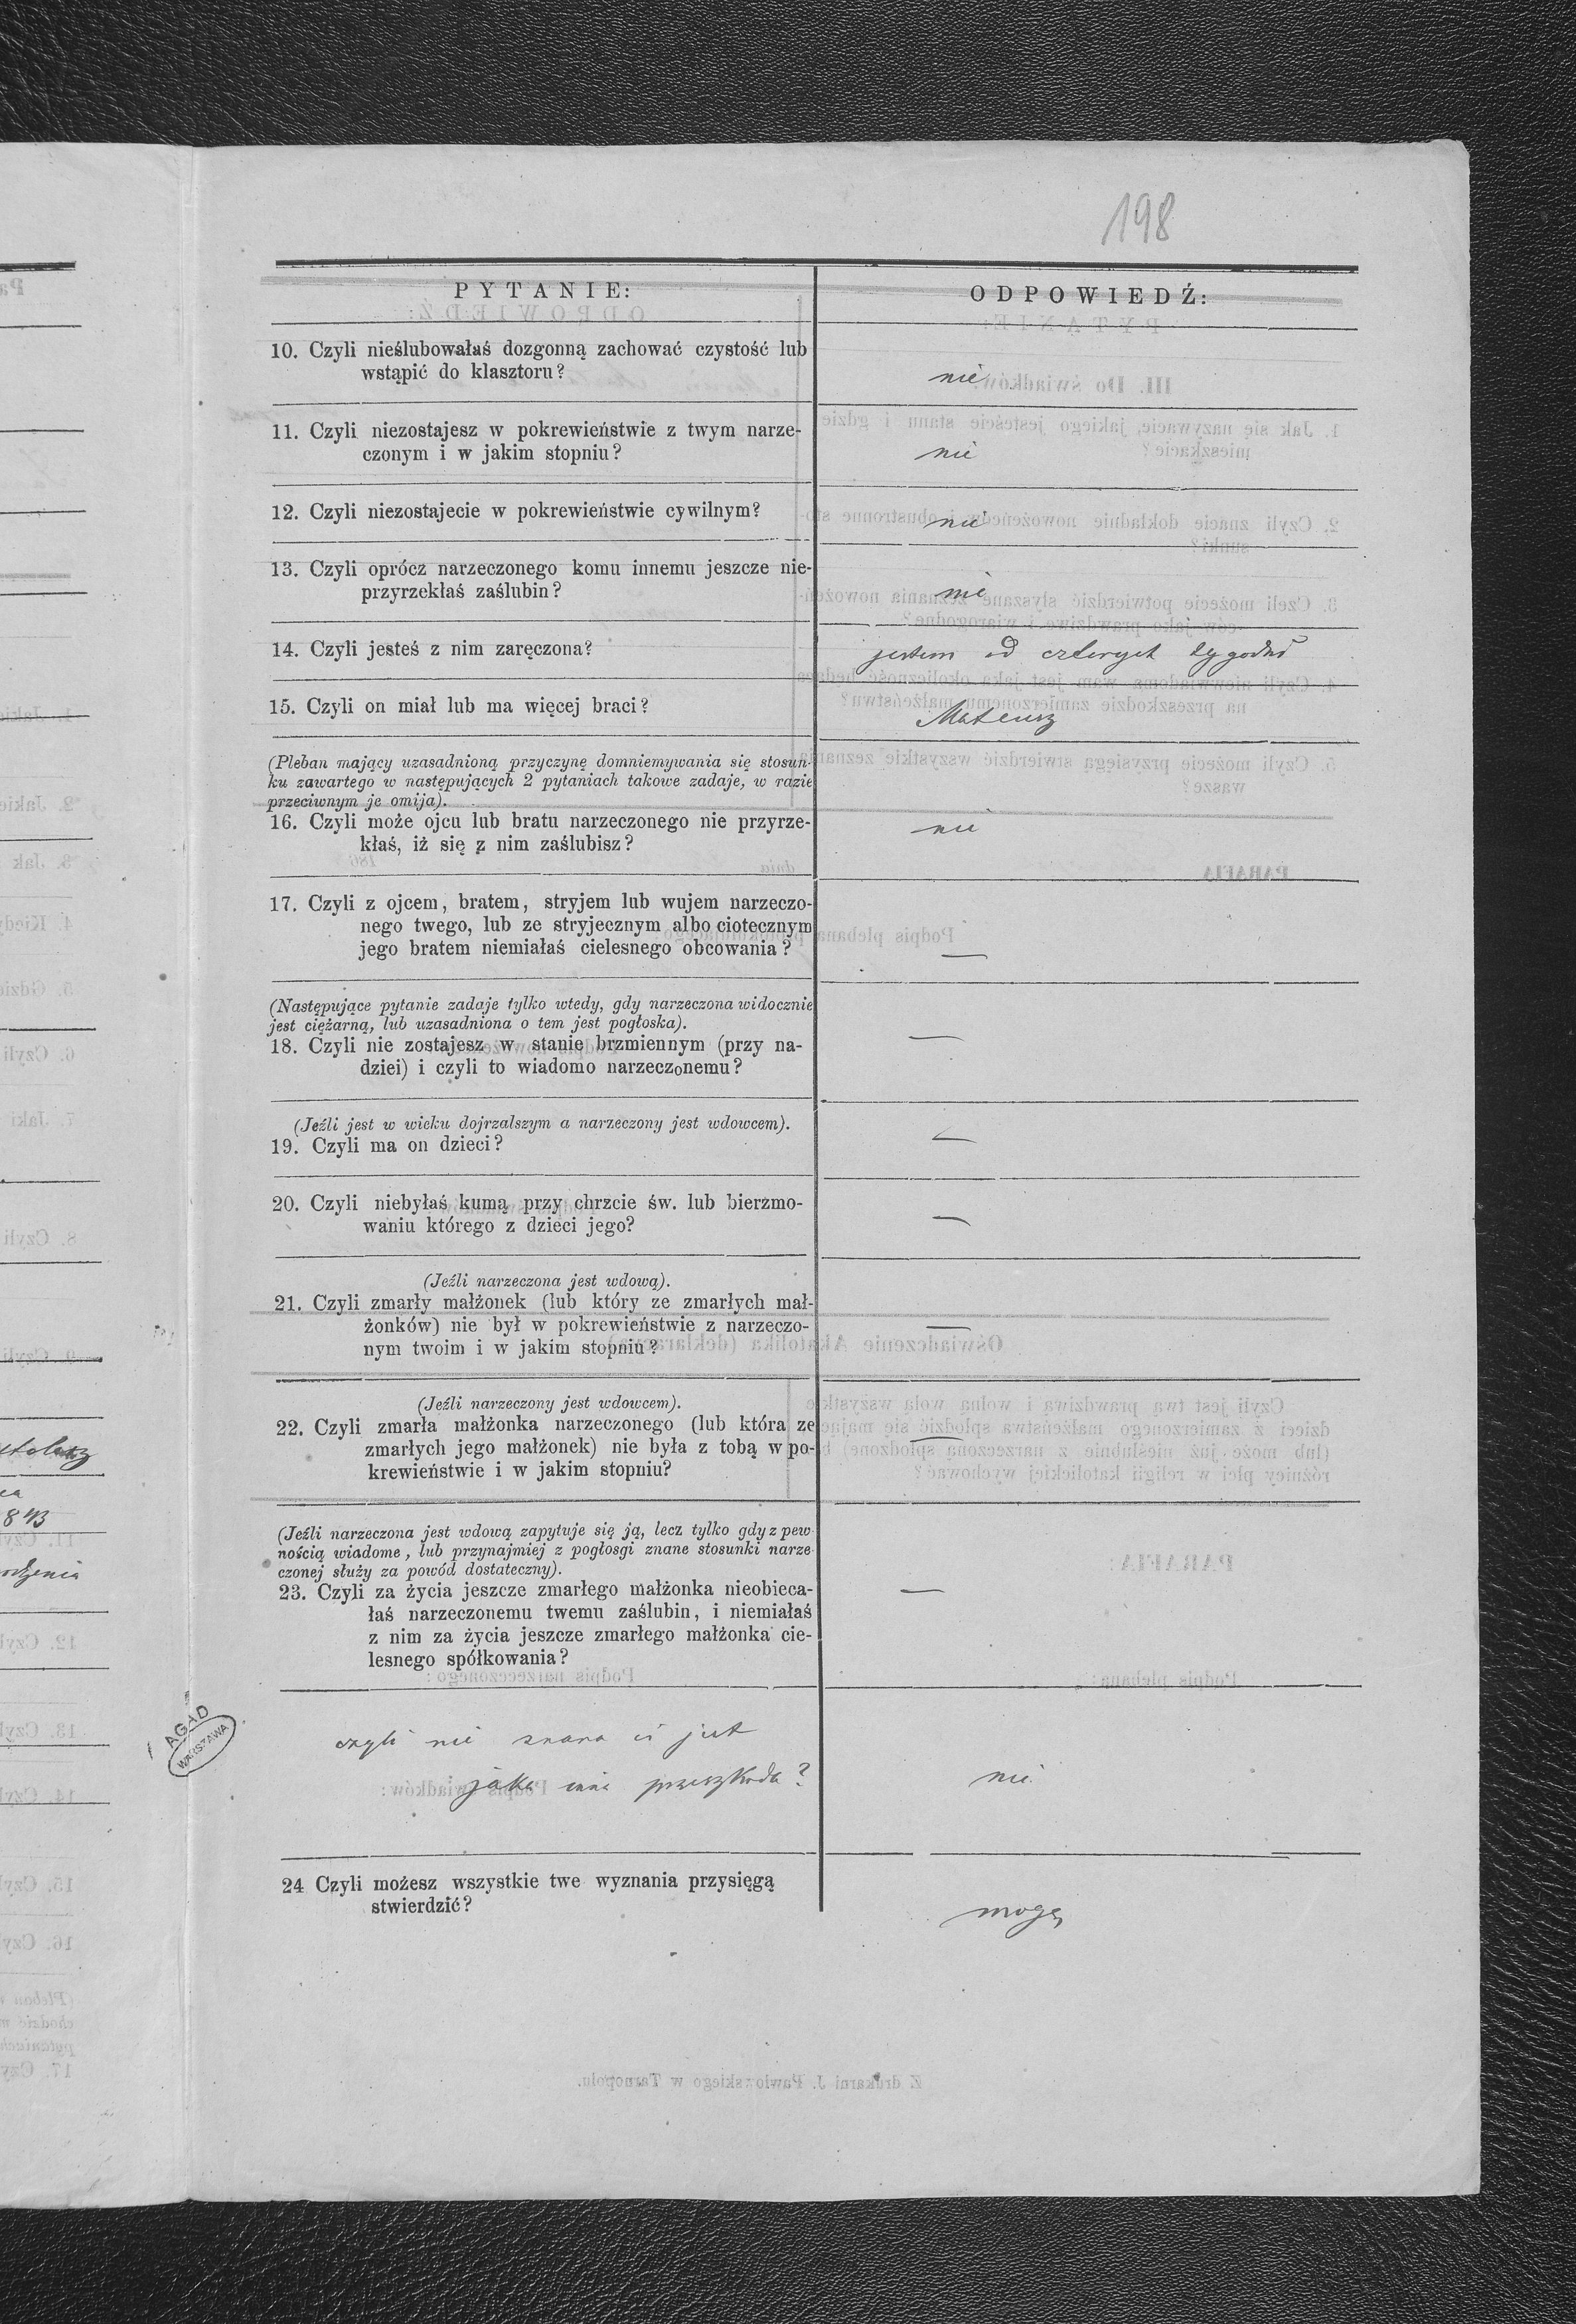 198
PYTANIE:
ODPOWIEDŹ:
10. Czyli nieślubowałaś dozgonną zachować czystość lub
wstąpić do klasztoru?
nie
11. Czyli niezostajesz w pokrewieństwie z twym narze-
czonym i w jakim stopniu?
nie
12. Czyli niezostajecie w pokrewieństwie cywilnym?
nie
13. Czyli oprócz narzeczonego komu innemu jeszcze nie-
przyrzekłaś zaślubin?
nie
14. Czyli jesteś z nim zaręczona?
jestem od czterych tygodni
15. Czyli on miał lub ma więcej braci?
Mateusz
(Pleban mający uzasadnioną przyczynę domniemywania się stosun-
ku zawartego w następujących 2 pytaniach takowe zadaje, w razie
przeciwnym je omija).
16. Czyli może ojcu lub bratu narzeczonego nie przyrze-
kłaś, iż się z nim zaślubisz?
nie
17. Czyli z ojcem, bratem, stryjem lub wujem narzeczo-
nego twego, lub ze stryjecznym albo ciotecznym
jego bratem niemiałaś cielesnego obcowania?
—
(Następujące pytanie zadaje tylko wtedy, gdy narzeczona widocznie
jest ciężarną, lub uzasadniona o tem jest pogłoska).
18. Czyli nie zostajesz w stanie brzmiennym (przy na-
dziei) i czyli to wiadomo narzeczonemu?
—
(Jeźli jest w wieku dojrzalszym a narzeczony jest wdowcem).
19. Czyli ma on dzieci?
—
20. Czyli niebyłaś kumą przy chrzcie św. lub bierzmo-
waniu którego z dzieci jego?
—
(Jeźli narzeczona jest wdową).
21. Czyli zmarły małżonek (lub który ze zmarłych mał-
żonków) nie był w pokrewieństwie z narzeczo-
nym twoim i w jakim stopniu?
—
(Jeźli narzeczony jest wdowcem).
22. Czyli zmarła małżonka narzeczonego (lub która ze
zmarłych jego małżonek) nie była z tobą w po-
krewieństwie i w jakim stopniu?
—
(Jeźli narzeczona jest wdową zapytuje się ją, lecz tylko gdy z pew-
nością wiadome, lub przynajmiej z pogłosgi znane stosunki narze-
czonej służy za powód dostateczny).
23. Czyli za życia jeszcze zmarłego małżonka nieobieca-
łaś narzeczonemu twemu zaślubin, i niemiałaś
z nim za życia jeszcze zmarłego małżonka cie-
lesnego spółkowania?
—
czyli nie znana ci jest
jaka inna przeszkoda?
nie
24 Czyli możesz wszystkie twe wyznania przysięgą
stwierdzić?
mogę
AGAD
WARSZAWA